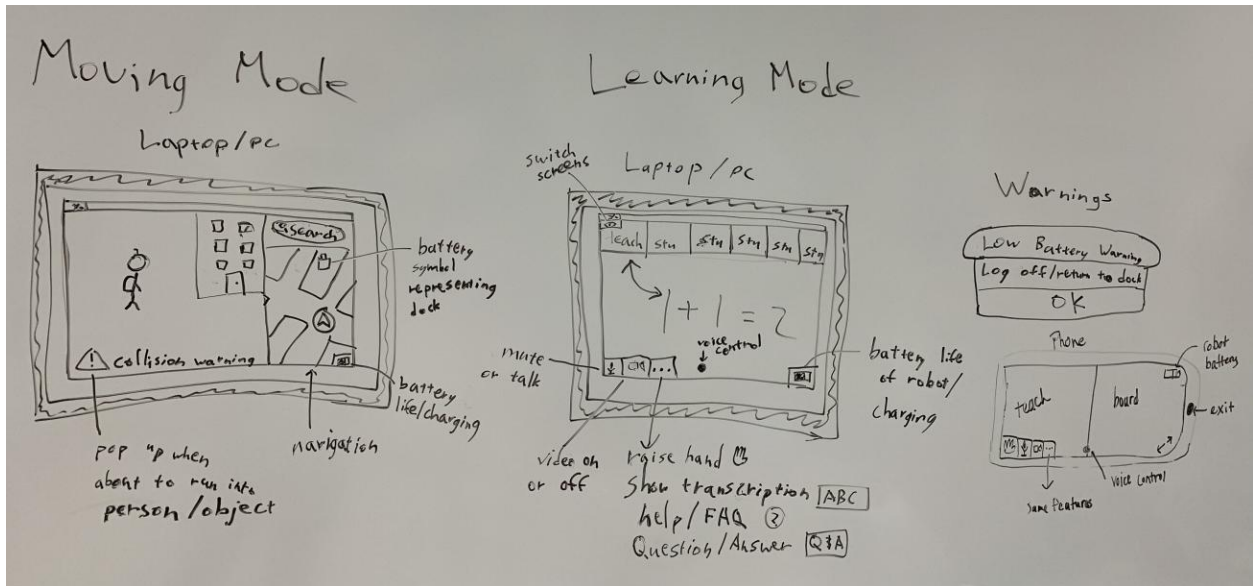 Moving Mode
Laptop/pc
search
collision warning
battery
symbol
representing
dock
battery
life/charging
navigation
pop up when
about to run into
person/object
Learning Mode
Laptop/pc
switch
screens
teach stn stn stn stn stn
1+1=2
voice
control
mute
or talk
...
video on
or off
battery life
of robot/
charging
raise hand
Show transcription ABC
help/FAQ ?
Question/Answer Q&A
Warnings
Low Battery Warning
Log off/return to dock
OK
Phone
robot
battery
teach
board
exit
...
voice control
same features